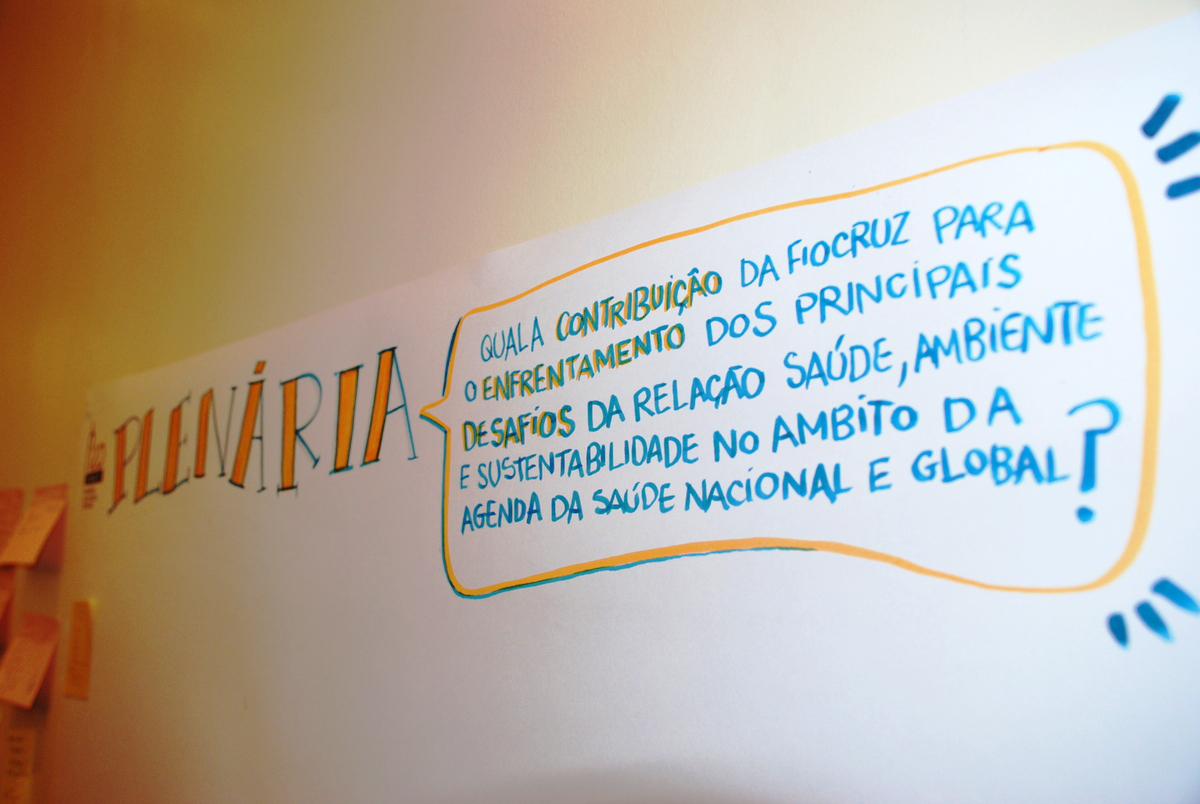 PLENÁRIA
QUAL A CONTRIBUIÇÃO DA FIOCRUZ PARA
O ENFRENTAMENTO DOS PRINCIPAIS
DESAFIOS DA RELAÇÃO SAÚDE, AMBIENTE
E SUSTENTABILIDADE NO AMBITO DA
AGENDA DA SAÚDE NACIONAL E GLOBAL?